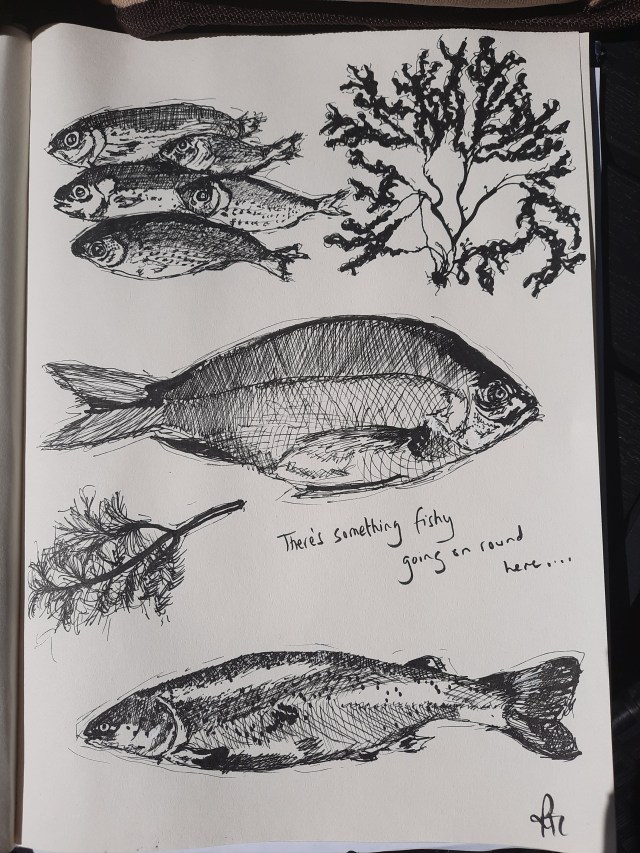 There's something fishy
going on round
here....